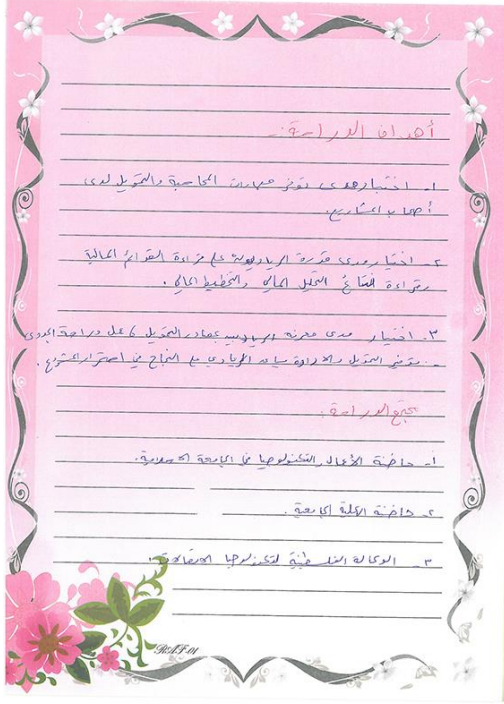 أهداف الدراسة:
١- اختبار مدى توفر مهارات المحاسبة والتمويل لدى
أصحاب المشاريع.
٢- اختبار مدى قدرة الرياديون على قراءة القوائم المالية
وقراءة نتائج التحليل المالي والتخطيط المالي.
٣- اختبار مدى معرفة بمصادر التمويل دراسة الجدوى
- توفير التمويل النجاح في استمرار المشروع.
مجتمع الدراسة:
١- حاضنة الأعمال التكنولوجيا في الجامعة الاسلامية.
٢- حاضنة الكلية الجامعية.
٣- الوكالة الفلسطينية لتكنولوجيا الاتصالات.
RAF-01